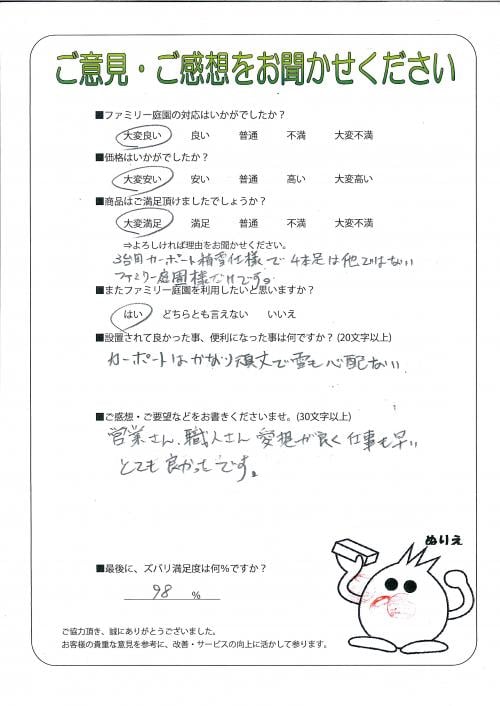 ご意見・ご感想をお聞かせください
■ファミリー庭園の対応はいかがでしたか？
大変良い 良い 普通 不満 大変不満
■価格はいかがでしたか？
大変安い 安い 普通 高い 大変高い
■商品はご満足頂けましたでしょうか？
大変満足 満足 普通 不満 大変不満
⇒よろしければ理由をお聞かせください。
3台用カーポート積雪仕様で4本足は他ではない
ファミリー庭園様だけです。
■またファミリー庭園を利用したいと思いますか？
はい どちらとも言えない いいえ
■設置されて良かった事、便利になった事は何ですか？(20文字以上)
カーポートはかなり頑丈で雪も心配ない
■ご感想・ご要望などをお書きくださいませ。(30文字以上)
営業さん、職人さん 愛想が良く仕事も早い
とても良かったです。
ぬりえ
■最後に、ズバリ満足度は何%ですか？
98 %
ご協力頂き、誠にありがとうございました。
お客様の貴重な意見を参考に、改善・サービスの向上に活かして参ります。